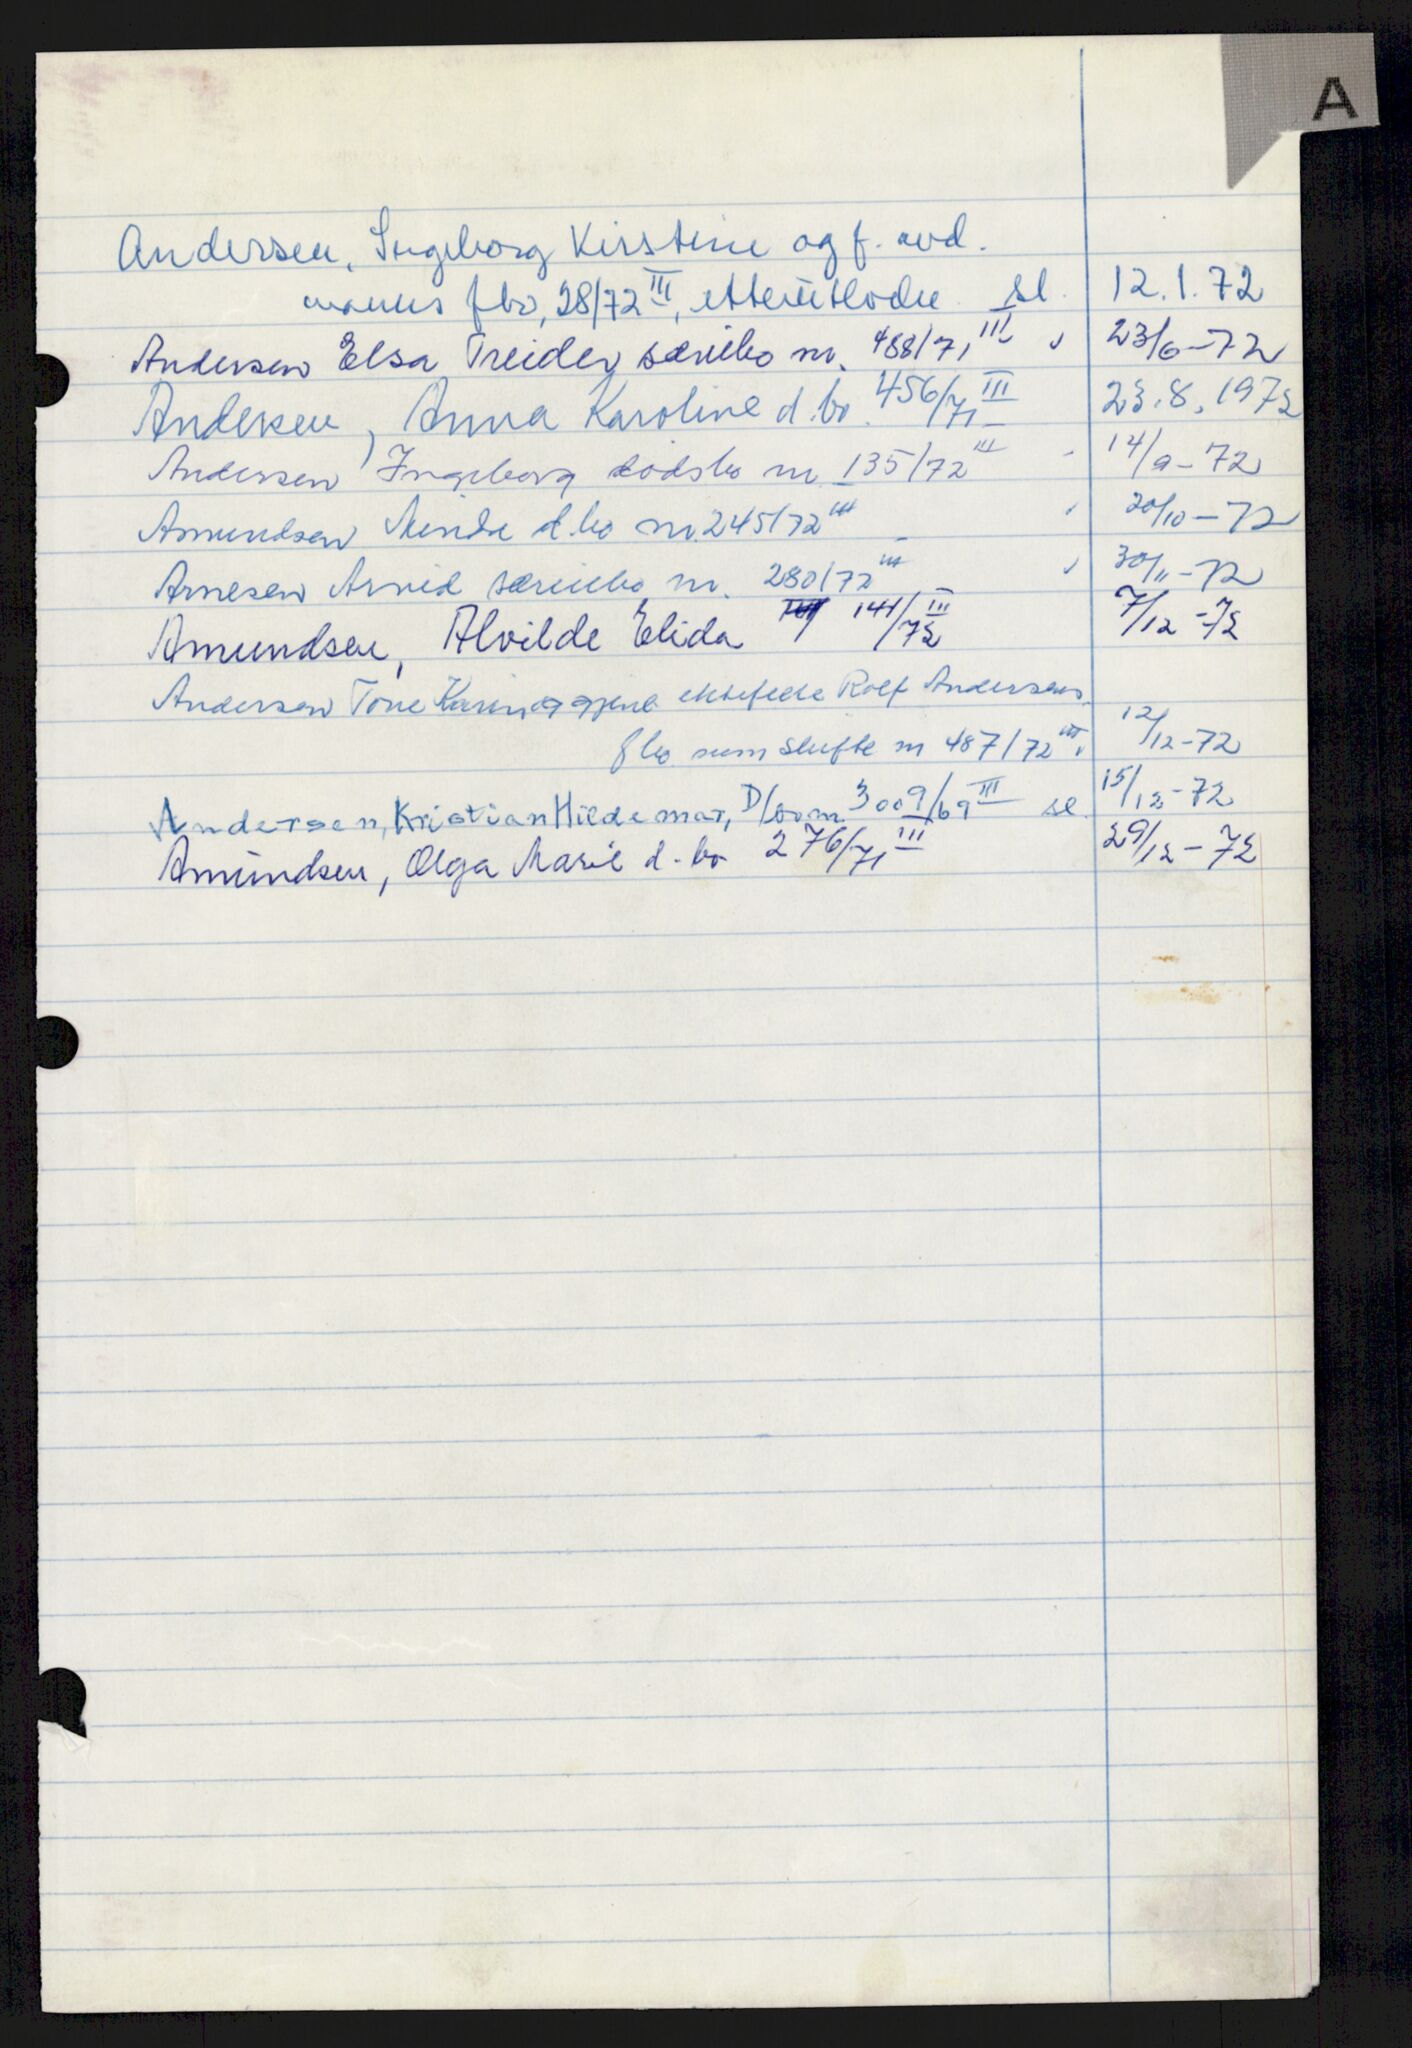 A
Andersen, Ingeborg Kirstine og f. avd.
manns fbo, 28/72 III, etterutlodn. sl. 12.1.72
Andersen Elsa Treider særeiebo nr. 488/71 III 23/6-72
Andersen, Anna Karoline d.bo. 456/71 III 23.8.1972
Andersen Ingeborg dødsbo nr 135/72 III 14/9-72
Amundsen Minda d.bo nr. 245/72 III 20/10-72
Arnesen Arvid særeiebo nr. 280/72 III 30/11-72
Amundsen, Alvilde Elida 141/72 III 7/12-72
Andersen Tone Karin og gjenl ektefelle Rolf Andersens
fbo nr 487/72 III 12/12-72
Andersen, Kristian Hildemar, D/bo nr. 3009/69 III sl. 15/12-72
Amundsen, Olga Marie d.bo 276/71 III 29/12-72